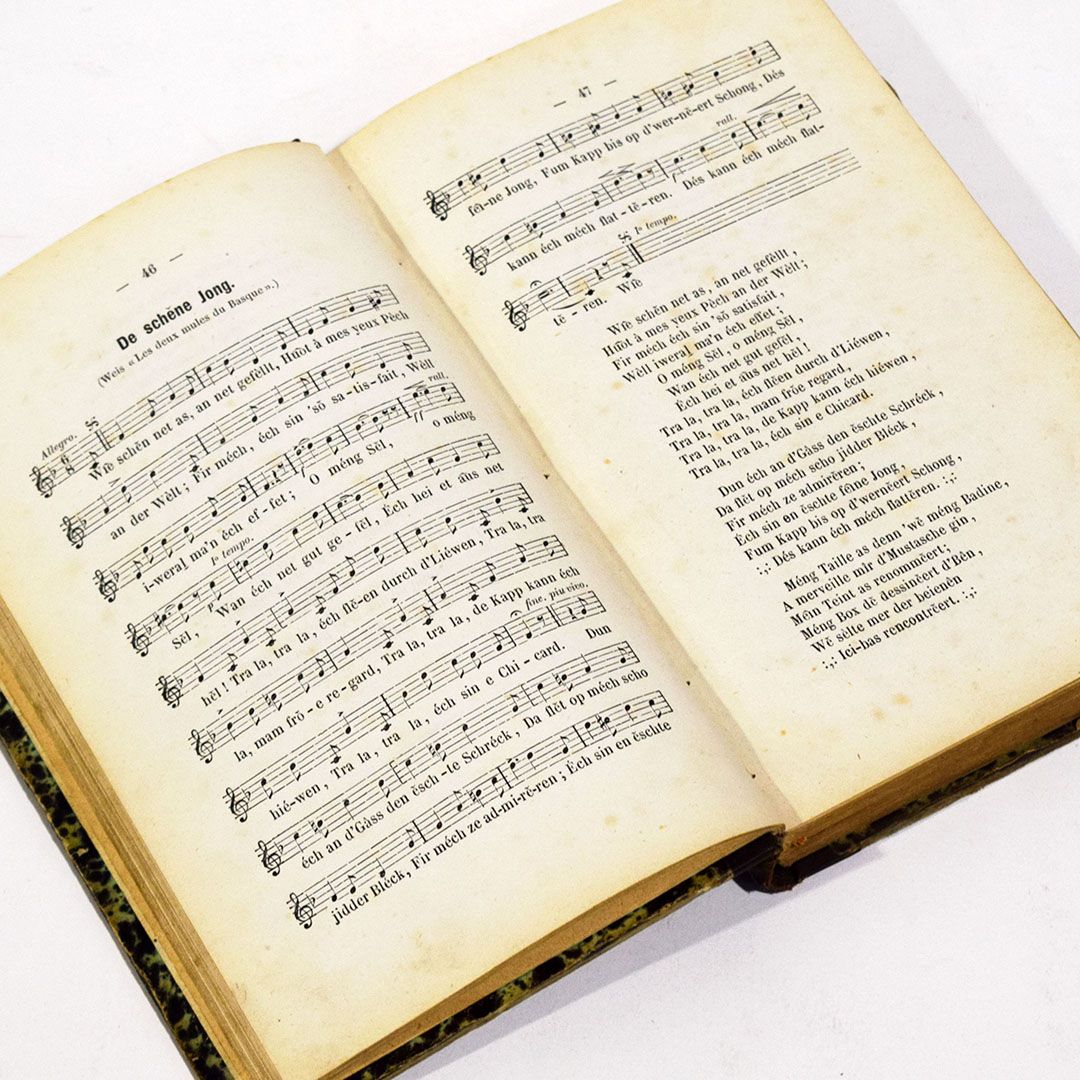 — 46 —
De schëne Jong.
(Weis « Les deux mules du Basque ».)
Allegro.
Wĭe schĕn net as, an net gefĕllt, Hŭot à mes yeux Pĕch
an der Wĕlt; Fir méch, éch sin 'sŏ sa-tis-fait, Wĕll
rall.
i-wera] ma'n éch ef-fet; O méng Sĕl, o méng
1º tempo.
Sĕl, Wan éch net gut ge-fĕl, Éch hei et aŭs net
hĕl! Tra la, tra la, éch flĕ-en durch d'Liéwen, Tra la, tra
la, mam frŏ-e re-gard, Tra la, tra la, de Kapp kann éch
fine. piu vivo.
hié-wen, Tra la, tra la, éch sin e Chi-card. Dun
éch an d'Gàss den ĕsch-te Schréck, Da flĕt op méch scho
jidder Bléck, Fir méch ze ad-mi-rĕ-ren; Éch sin en ĕschte
— 47 —
féi-ne Jong, Fum Kapp bis op d'wer-nĕ-ert Schong, Dés
rall.
kann éch méch flat-tĕ-ren. Dés kann éch méch flat-
1º tempo.
tĕ-ren. Wĭe
Wĭe schĕn net as, an net gefĕllt,
Hŭot à mes yeux Pĕch an der Wĕlt;
Fir méch éch sin' sŏ satisfait,
Wĕll iwera] ma'n éch effet;
O méng Sĕl, o méng Sĕl,
Wan éch net gut gefĕl,
Éch hei et aŭs net hĕl!
Tra la, tra la, éch flĕen durch d'Liéwen,
Tra la, tra la, mam frŏe regard,
Tra la, tra la, de Kapp kann éch hiéwen,
Tra la, tra la, éch sin e Chicard.
Dun éch an d'Gàss den ĕschte Schréck,
Da flĕt op méch scho jidder Bléck,
Fir méch ze admirĕren;
Éch sin en ĕschte féine Jong,
Fum Kapp bis op d'wernĕert Schong,
:,: Dés kann éch méch flattĕren. :,:
Méng Taille as denn 'wĕ méng Badine,
A merveille mir d'Mustasche gin,
Mĕn Teint as renommĕert;
Méng Box dĕ dessinĕert d'Bĕn,
Wĕ sĕite mer der beienĕn
:,: Ici-bas rencontrĕert. :,: